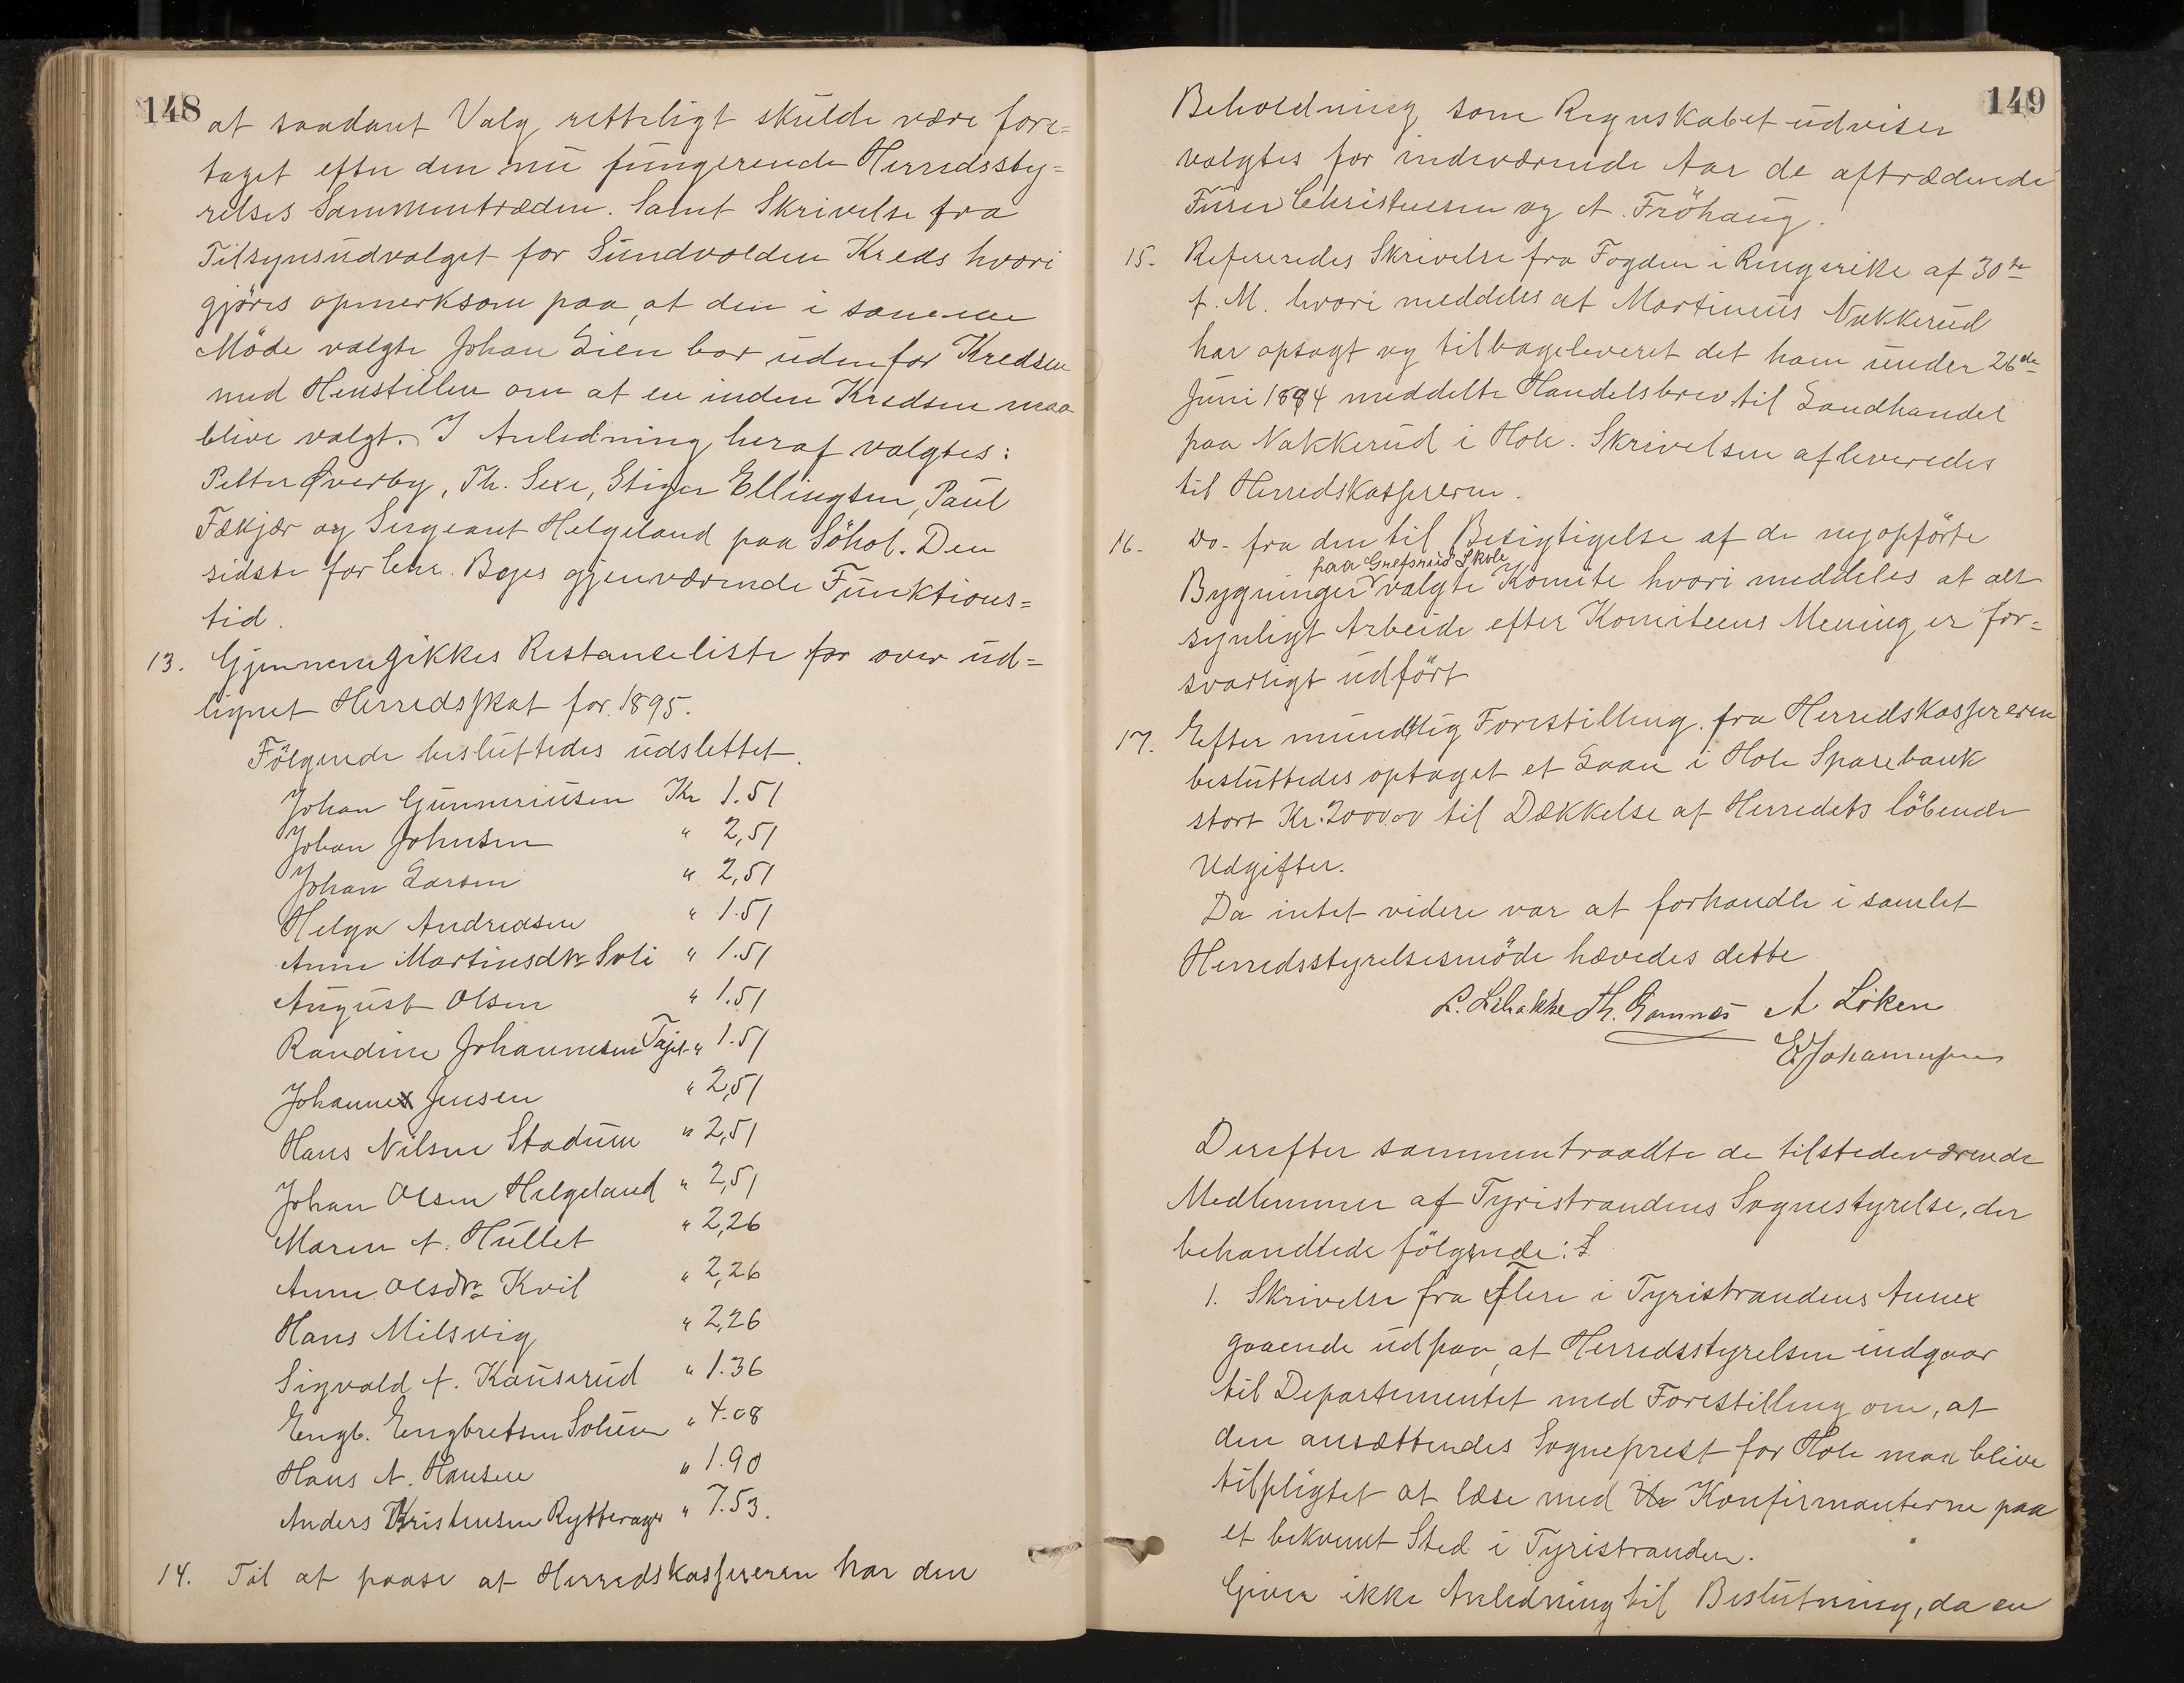 148
at saadant Valg retteligt skulde være fore=
taget efter den nu fungerende Herredssty=
relses Sammentræden. Samt Skrivelse fra
Tilsynsudvalget for Sundvolden Kreds hvori
gjöres opmerksom paa, at den i samme
Möde valgte Johan Lien bor udenfor Kredsen
med Henstillen om at en inden Kredsen maa
blive valgt. I Anledning heraf valgtes:
Petter Øverby, Th. Sexe, Stiger Ellingsen, Paul
Fækjær og Sergeant Helgeland paa Söhol. Den
sidste for Chr. Bøges gjenværende Funktions=
tid.
13. Gjennemgikkes Restanceliste for over ud=
lignet Herredsskat for 1895.
Fölgende besluttedes udslettet.
Johan Gunneriusen Kr 1.51
Johan Johnsen " 2,51
Johan Larsen " 2,51
Helga Andreasen " 1.51
Anne Martinsdtr Svli " 1.51
August Olsen " 1.51
Randine Johannesen Tajet " 1.51
Johannes Jensen " 2,51
Hans Nilsen Stadum " 2,51
Johan Olsen Helgeland " 2,51
Maren A. Hullet " 2,26
Anne Olsdtr Kvil " 2,26
Hans Milsvig " 2,26
Sigvald A. Kauserud " 1.36
Engb. Engbretsen Solum " 4.08
Hans A. Hansen " 1.90
Anders Kristensen Rytterager " 7.53.
14. Til at paase at Herredskassereren har den
149
Beholdning som Regnskabet udviser
valgtes for indeværende Aar de aftrædende
Furer Christensen og A. Fröhaug.
15. Refereredes Skrivelse fra Fogden i Ringerike af 30te
f. M. hvori meddeles at Martinius Nakkerud
har opsagt og tilbageleveret det ham under 26de
Juni 1894 meddelte Handelsbrev til Landhandel
paa Nakkerud i Hole. Skrivelsen afleveredes
til Herredskassereren.
16. Do. fra den til Besigtigelse af de nyopförte
paa Grefsrud Skole
Bygninger valgte Komite hvori meddeles at alt
synligt Arbeide efter Komiteens Mening er for=
svarligt udfört
17. Efter mundtlig Forestilling fra Herredskassereren
besluttedes optaget et Laan i Hole Sparebank
stort Kr. 2000.00 til Dækkelse af Herredets löbende
Udgifter.
Da intet videre var at forhandle i samlet
Herredsstyrelsesmöde hævedes dette
Th. Gomnæs A Löken
E Johannessen
Derefter sammentraadte de tilstedeværende
Medlemmer af Tyristrandens Sognestyrelse, der
behandlede fölgende:
1. Skrivelse fra flere i Tyristrandens Annex
gaaende ud paa, at Herredsstyrelsen indgaar
til Departementet med Forestilling om, at
den ansættendes Sogneprest for Hole maa blive
tilpligtet at læse med Konfirmanterne paa
et bekvemt Sted i Tyristranden.
Giver ikke Anledning til Beslutning, da en